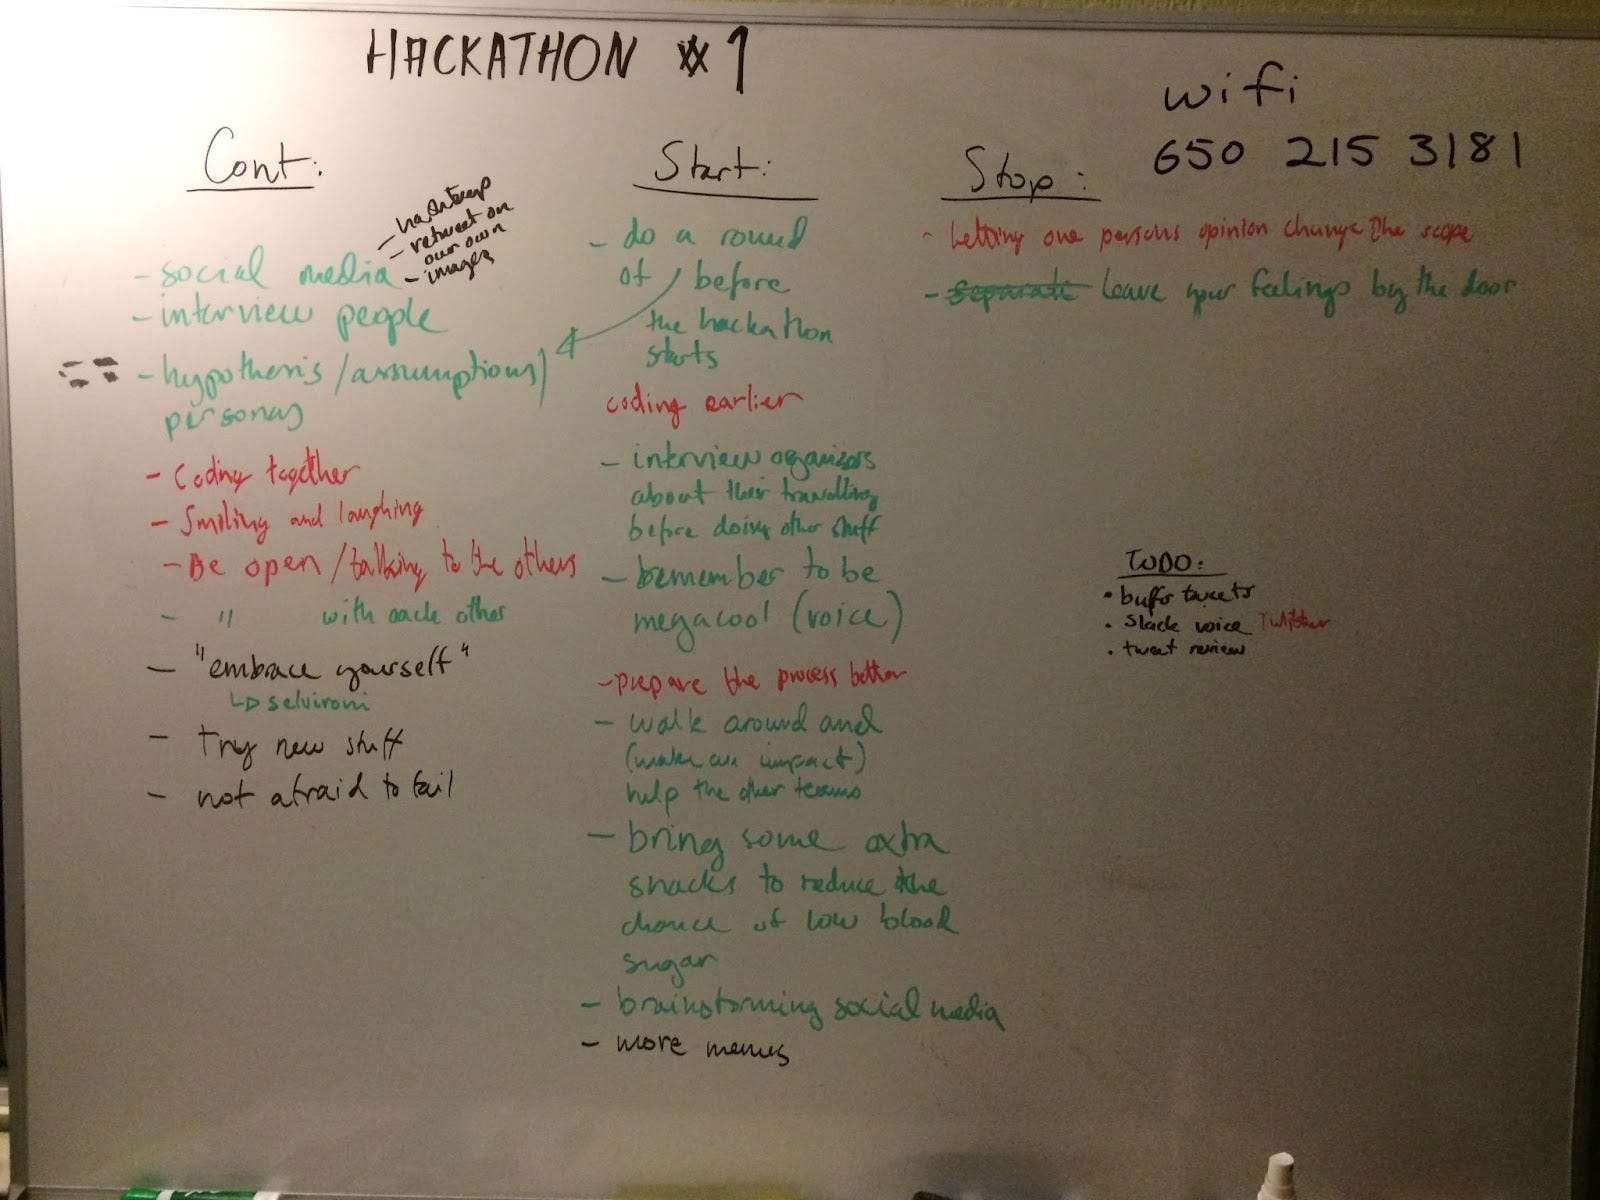 HACKATHON #1
wifi
650 215 3181
Cont:
- retweet on
our own
- images
- social media
- interview people
- hypothesis/assumptions/
personas
- Coding together
- Smiling and laughing
- Be open/talking to the others
- " with each other
- "embrace yourself"
selvironi
- Try new stuff
- not afraid to fail
Start:
- do a round
of before
the hackathon
starts
coding earlier
- interview organizors
about their travelling
before doing other stuff
- remember to be
megacool (voice)
- prepare the process better
- walk around and
(make an impact)
help the other teams
- bring some extra
snacks to reduce the
chance of low blood
sugar
- brainstorming social media
- more memes
Stop:
- Letting one persons opinion change the scope
- separate leave your feelings by the door
TODO:
• buffr tweets
• Slack voice Twitter
• tweet review